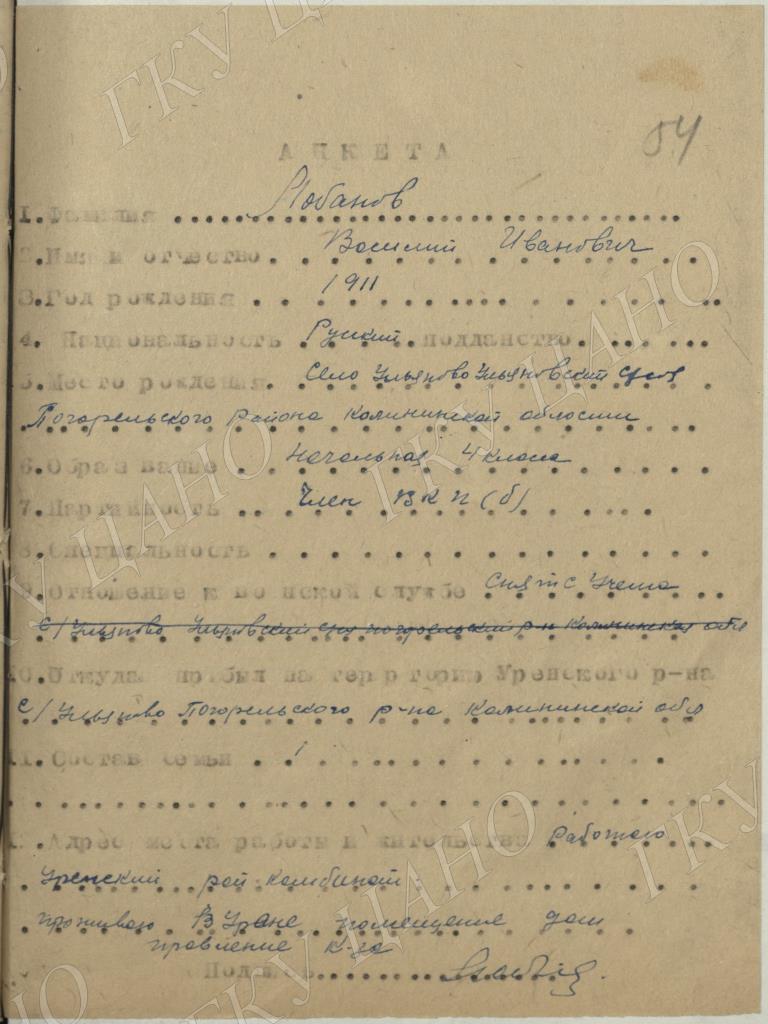 54
АНКЕТА
1. Фамилия Лобанов
2. Имя и отчество Василий Иванович
3. Год рождения 1911
4. Национальность Руский подданство
5. Место рождения Село Ульяново Ульяновский
Погорельского района Калининской области
6. Образование Начальная 4 класа
7. Партийность Член ВКП(б)
8. Специальность
9. Отношение к воинской службе Снят с Учета
с/Ульяново Погорельский р-н Калининская обл
10. Откуда прибыл на территорию Уренского р-на
с/Ульяново Погорельского р-на Калининской обл
11. Состав семьи 1
Адрес места работы и жительства Работаю
Уренский рай комбинат
проживаю В Урене помещение дом
правление к-за
Подпись
ГКУ ЦАНО